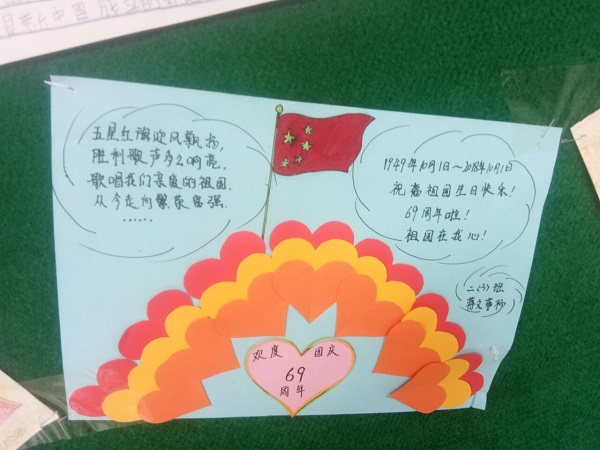 五星红旗迎风飘扬,
胜利歌声多么响亮,
歌唱我们亲爱的祖国,
从今走向繁荣富强.
······
1949年10月1日~2018年10月1日
祝福祖国生日快乐!
69周年啦!
祖国在我心!
二(3)班
欢度 国庆
69
周年